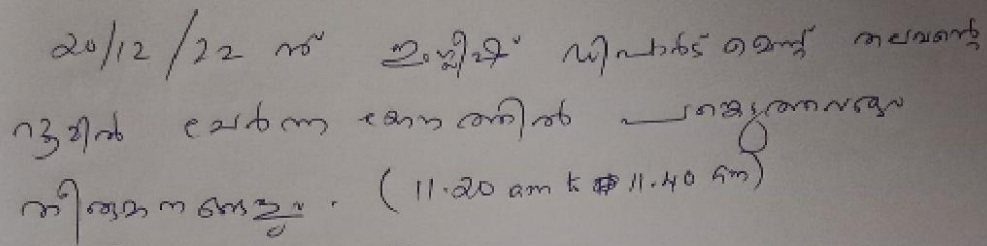 20/12/22 ന് ഇംഗ്ലീഷ് ഡിപാർട്മെന്റ് തലവന്റെ
റൂമിൽ ചേർന്ന യോഗത്തിൽ പങ്കെടുത്തവരും
തീരുമാനങ്ങളും. (11.20 am to 11.40 am)